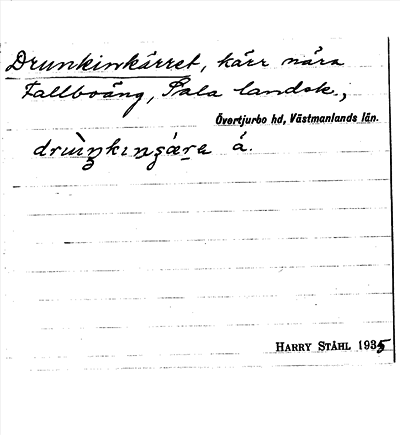 Drunkinkärret, kärr nära
Fallboäng, Sala landsk.,
Övertjurbo hd, Västmanlands län.
å.
HARRY STÅHL 1935